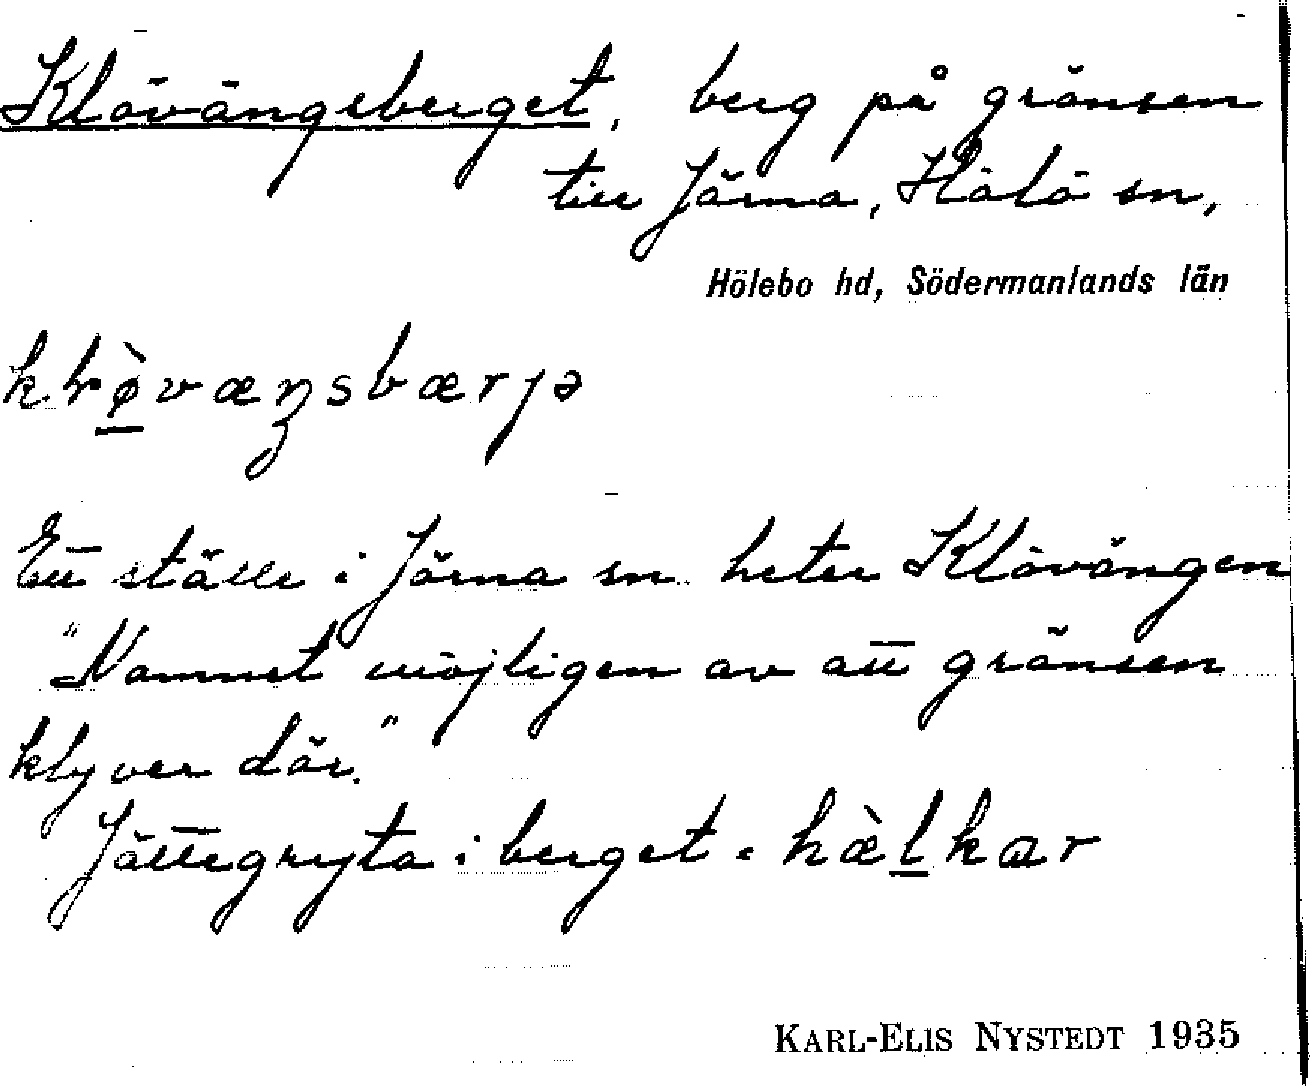 Klövängsberget, berg på gränsen
till Järna, Hölö sn,
Hölebo hd, Södermanlands län
klø̀væŋsbærjə
Ett ställe i Järna sn heter Klövängen
"Namnet möjligen av att gränsen
klyver där."
Jättegryta i berget = hæ̀lkar
KARL-ELIS NYSTEDT 1935